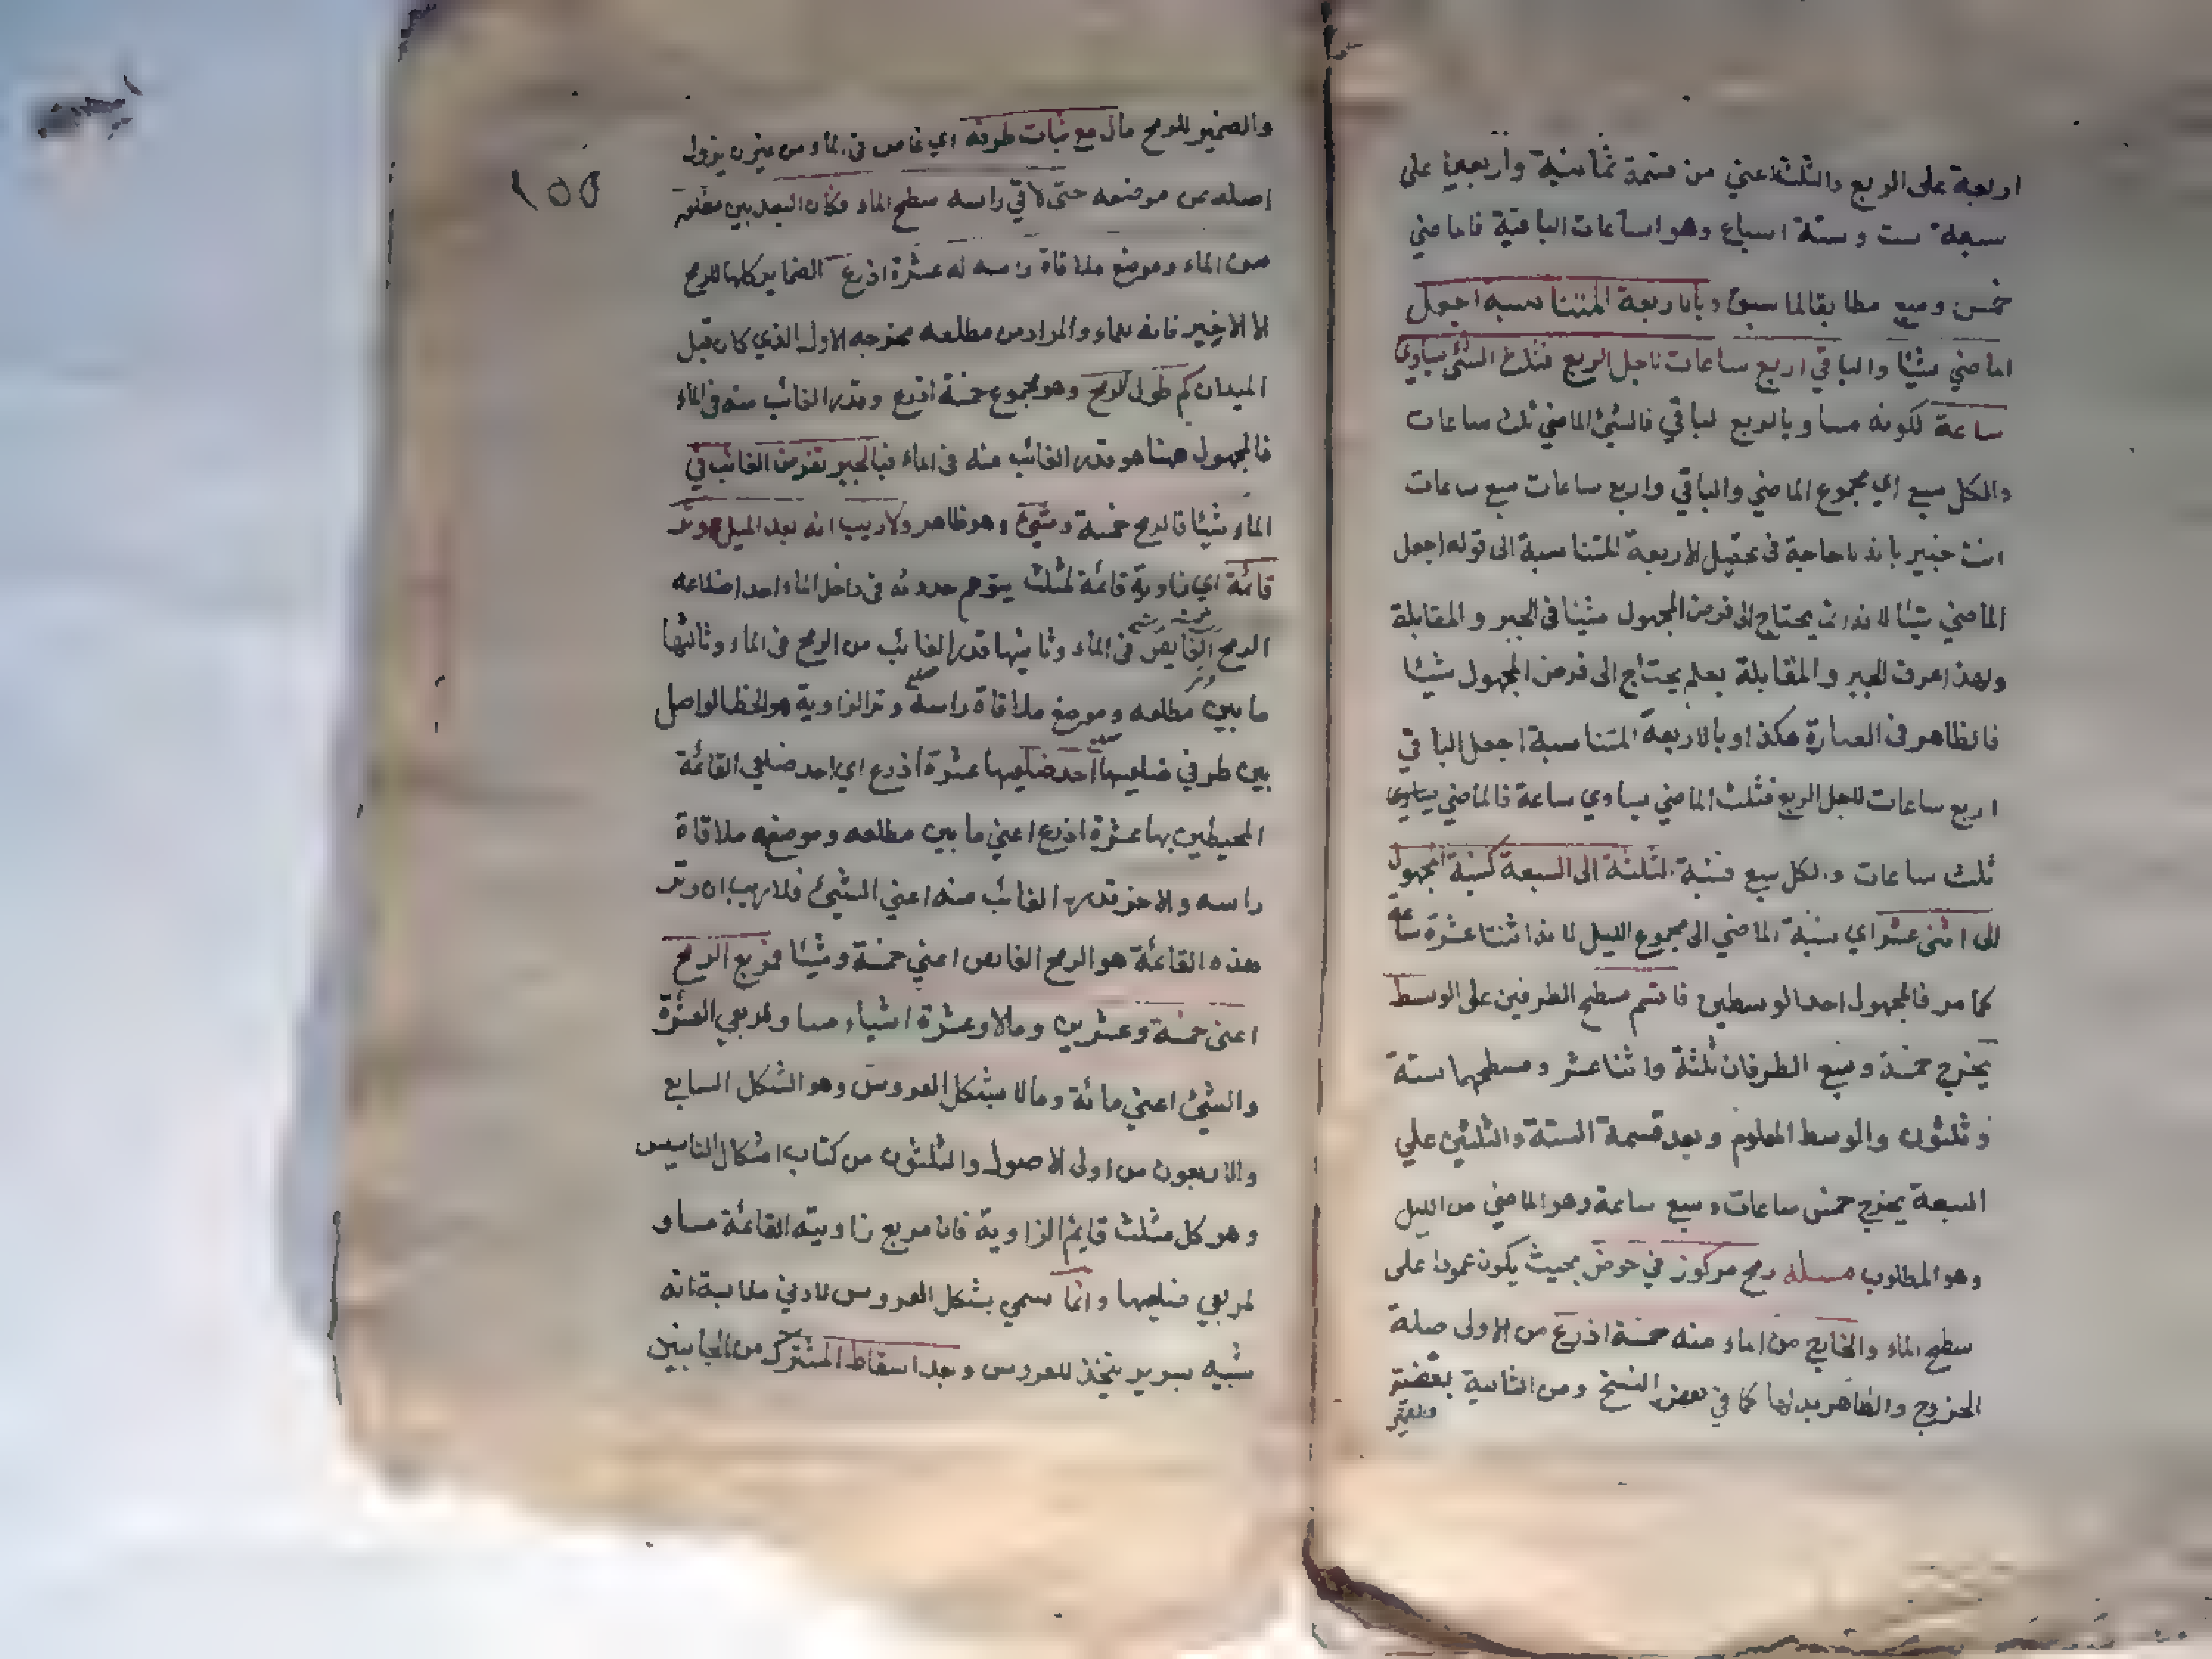 اربعة على الربع والثلث اعني من قسمة ثمانية واربعين على
سبعة ست وستة اسباع وهو الساعات الباقية فالماضي
خمس وسبع مطابقا لما سبق وبالاربعة المتناسبة اجعل
الماضي شيئا والباقي اربع ساعات لاجل الربع فثلث الشئ يساوي
ساعة لكونه مساويا لربع الباقي فالشئ الماضي ثلث ساعات
والكل سبع اي مجموع الماضي والباقي واربع ساعات سبع ساعات
انت خبير بانه لا حاجة في عمل الاربعة المتناسبة الى قوله اجعل
الماضي شيئا لانه انما يحتاج الى فرض المجهول شيئا في الجبر والمقابلة
ولهذا عرف الجبر والمقابلة بعلم يحتاج الى فرض المجهول شيئا
فالظاهر في العبارة هكذا وبالاربعة المتناسبة اجعل الباقي
اربع ساعات لاجل الربع فثلث الماضي يساوي ساعة فالماضي يساوي
ثلث ساعات والكل سبع فنسبة الثلثة الى السبعة كنسبة المجهول
الى اثنى عشر اي نسبة الماضي الى مجموع الليل لانه اثنتا عشرة ساعة
كما مر فالمجهول احد الوسطين فاقسم مسطح الطرفين على الوسط
يخرج خمسة وسبع الطرفان ثلثة واثنا عشر ومسطحهما ستة
وثلثون والوسط المعلوم وبعد قسمة الستة والثلثين على
السبعة يخرج خمس ساعات وسبع ساعة وهو الماضي من الليل
وهو المطلوب مسئلة رمح مركوز في حوض بحيث يكون عمودا على
سطح الماء والخارج من الماء منه خمسة اذرع من الاولى صلة
الخروج والظاهر بدلها كما في بعض النسخ ومن الثانية بعضية
والضمير
والضمير للرمح مال مع ثبات طرفه اي غاص في الماء من غير ان يزول
اصله عن موضعه حتى لاقى راسه سطح الماء فكان البعد بين مطلعه
من الماء وموضع ملاقاة راسه له عشرة اذرع الضماير كلها للرمح
الا الاخير فانه للماء والمراد من مطلعه مخرجه الاول الذي كان قبل
الميدان كم طول الرمح وهو مجموع خمسة اذرع وقدر الغائب منه في الماء
فالمجهول هنا هو قدر الغائب منه في الماء فبالجبر نفرض الغائب في
الماء شيئا فالرمح خمسة وشئ وهو ظاهر ولا ريب انه بعد الميل هو وتر
قائمة اي زاوية قائمة لمثلث يتوهم حدوثه في داخل الماء احد اضلاعه
الرمح الغايص في الماء وثانيها قدر الغائب من الرمح في الماء وثالثها
ما بين مطلعه وموضع ملاقاة راسه وتر الزاوية هو الخط الواصل
بين طرفي ضلعيها احد ضلعيها عشرة اذرع اي احد ضلعي القائمة
المحيطين بها عشرة اذرع اعني ما بين مطلعه وموضع ملاقاة
راسه والاخر قدر الغائب منه اعني الشئ فلا ريب ان وتر
هذه القائمة هو الرمح الغايص اعني خمسة وشيئا فمربع الرمح
اعني خمسة وعشرين ومالا وعشرة اشياء مساو لمربعي العشرة
والشئ اعني مائة ومالا بشكل العروس وهو الشكل السابع
والاربعون من اولى الاصول والثلثون من كتاب اشكال التاسيس
وهو كل مثلث قايم الزاوية فان مربع زاويته القائمة مساو
لمربعي ضلعيها وانما سمي بشكل العروس لادنى ملابسة انه
شبيه بسرير يتخذ للعروس وبعد اسقاط المشترك من الجانبين
١٥٥